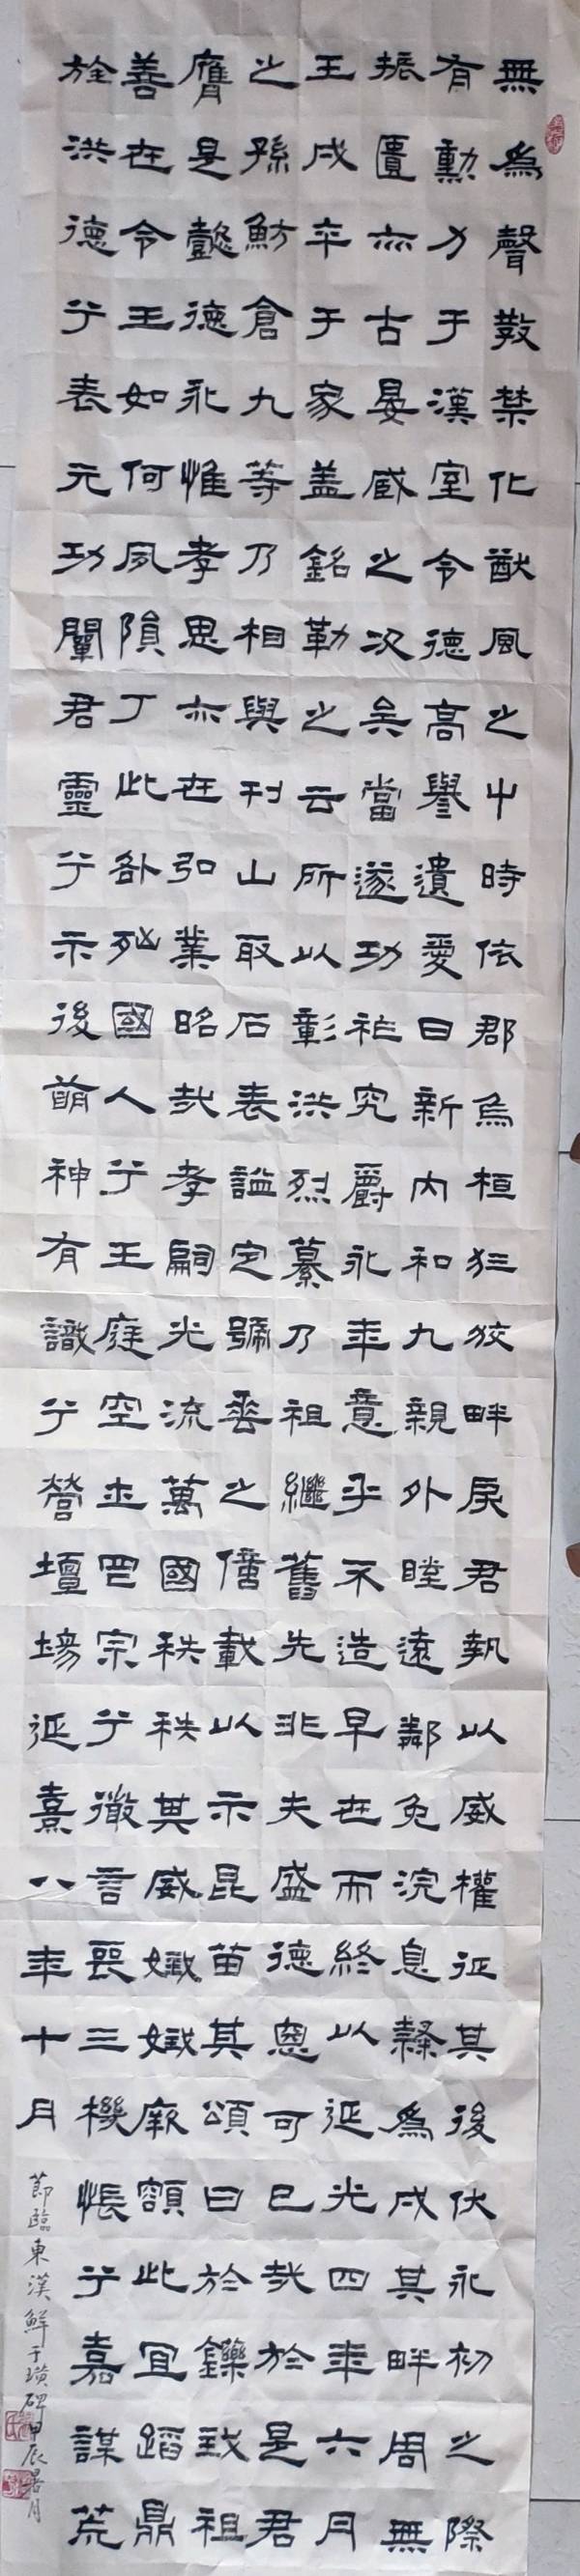 無為聲教禁化猷風之中時依郡烏桓狂狡畔戾君執以威權征其後伏永初之際
有勳力于漢室令德高譽遺愛日新內和九親外睦遠鄰免浣息隸為戍其畔周無
振匱亦古晏臧之次矣當遂功祚究爵永年意乎不造早在而終以延光四年六月
王戌卒于家蓋銘勒之云所以彰洪烈纂乃祖繼舊先非夫盛德恩可已哉於是君
之孫魴倉九等乃相與刊山取石表謚定號垂之億載以示昆苗其頌曰於鑠我祖
膺是懿德永惟孝思亦在弘業昭哉孝嗣光流萬國秩秩其威娥娥厥額此宜蹈鼎
善在令王如何夙隕丁此咎殃國人兮王庭空士罔宗兮微言喪三機悵兮嘉謀荒
於洪德兮表元功闡君靈兮示後萌神有識兮營壇場延熹八年十月
節臨東漢鮮于璜碑甲辰暑月